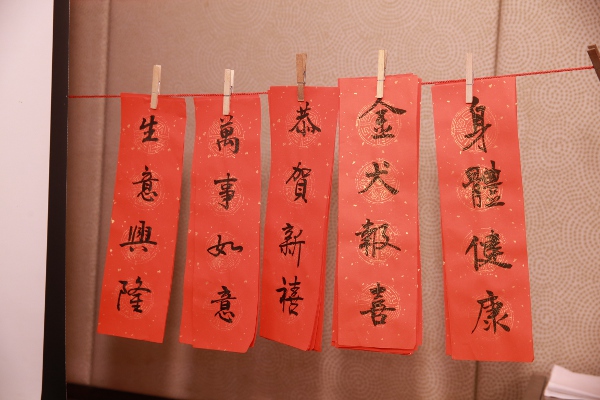 生意興隆
萬事如意
恭賀新禧
金犬報喜
身體健康